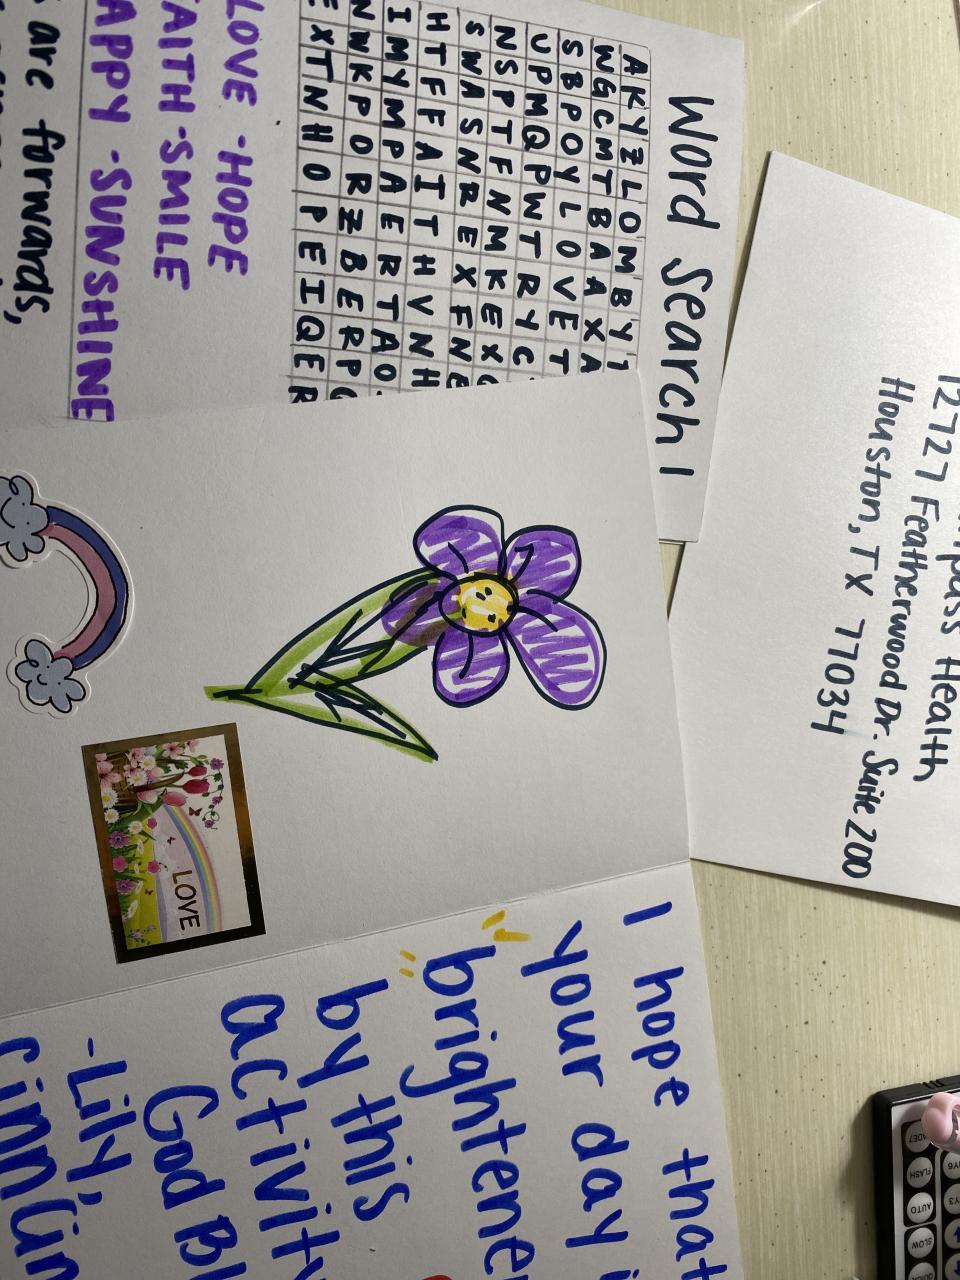 Word Search 1
AKYZLOMBY
WGCMTBAAXA
SBPOYLOVET
UPMQPWTRYC
NSPTFNMKEX
SWASNREXFNE
HTFFAITHVNH
IMYMPAERTAO
NWKPORZBERP
EXTNHOPEIQER
LOVE -HOPE
AITH -SMILE
APPY -SUNSHINE
are forwards,
Health
12727 Featherwood Dr. Suite 200
Houston, TX 77034
LOVE
I hope that
your day
brightene
by this
activity
God Bl
-Lily,
FLASH
AUTO
SLOW